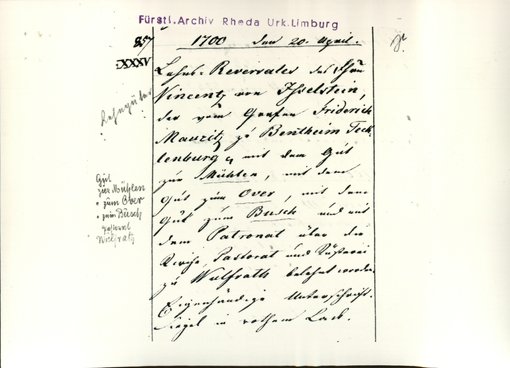 Fürstl. Archiv Rheda Urk. Limburg
857 1700 den 20. April.
DXXXV
Lehns-Reversales des
Vincentz von Isselstein,
der vom Grafen Friderich
Mauritz zu Bentheim Teck-
lenburg mit dem Gut
zur Mühlen, mit dem
Gut zum Over, mit dem
Gut zum Busch und mit
dem Patronat über die
Kirche, Pastorat und Küsterei
zu Wulfrath belehnt worden.
Eigenhändige Unterschrift.
Siegel in rothem Lack.
Lehngüter
Gut
zur Mühlen
" zum Over
" zum Busch
Wülfrath